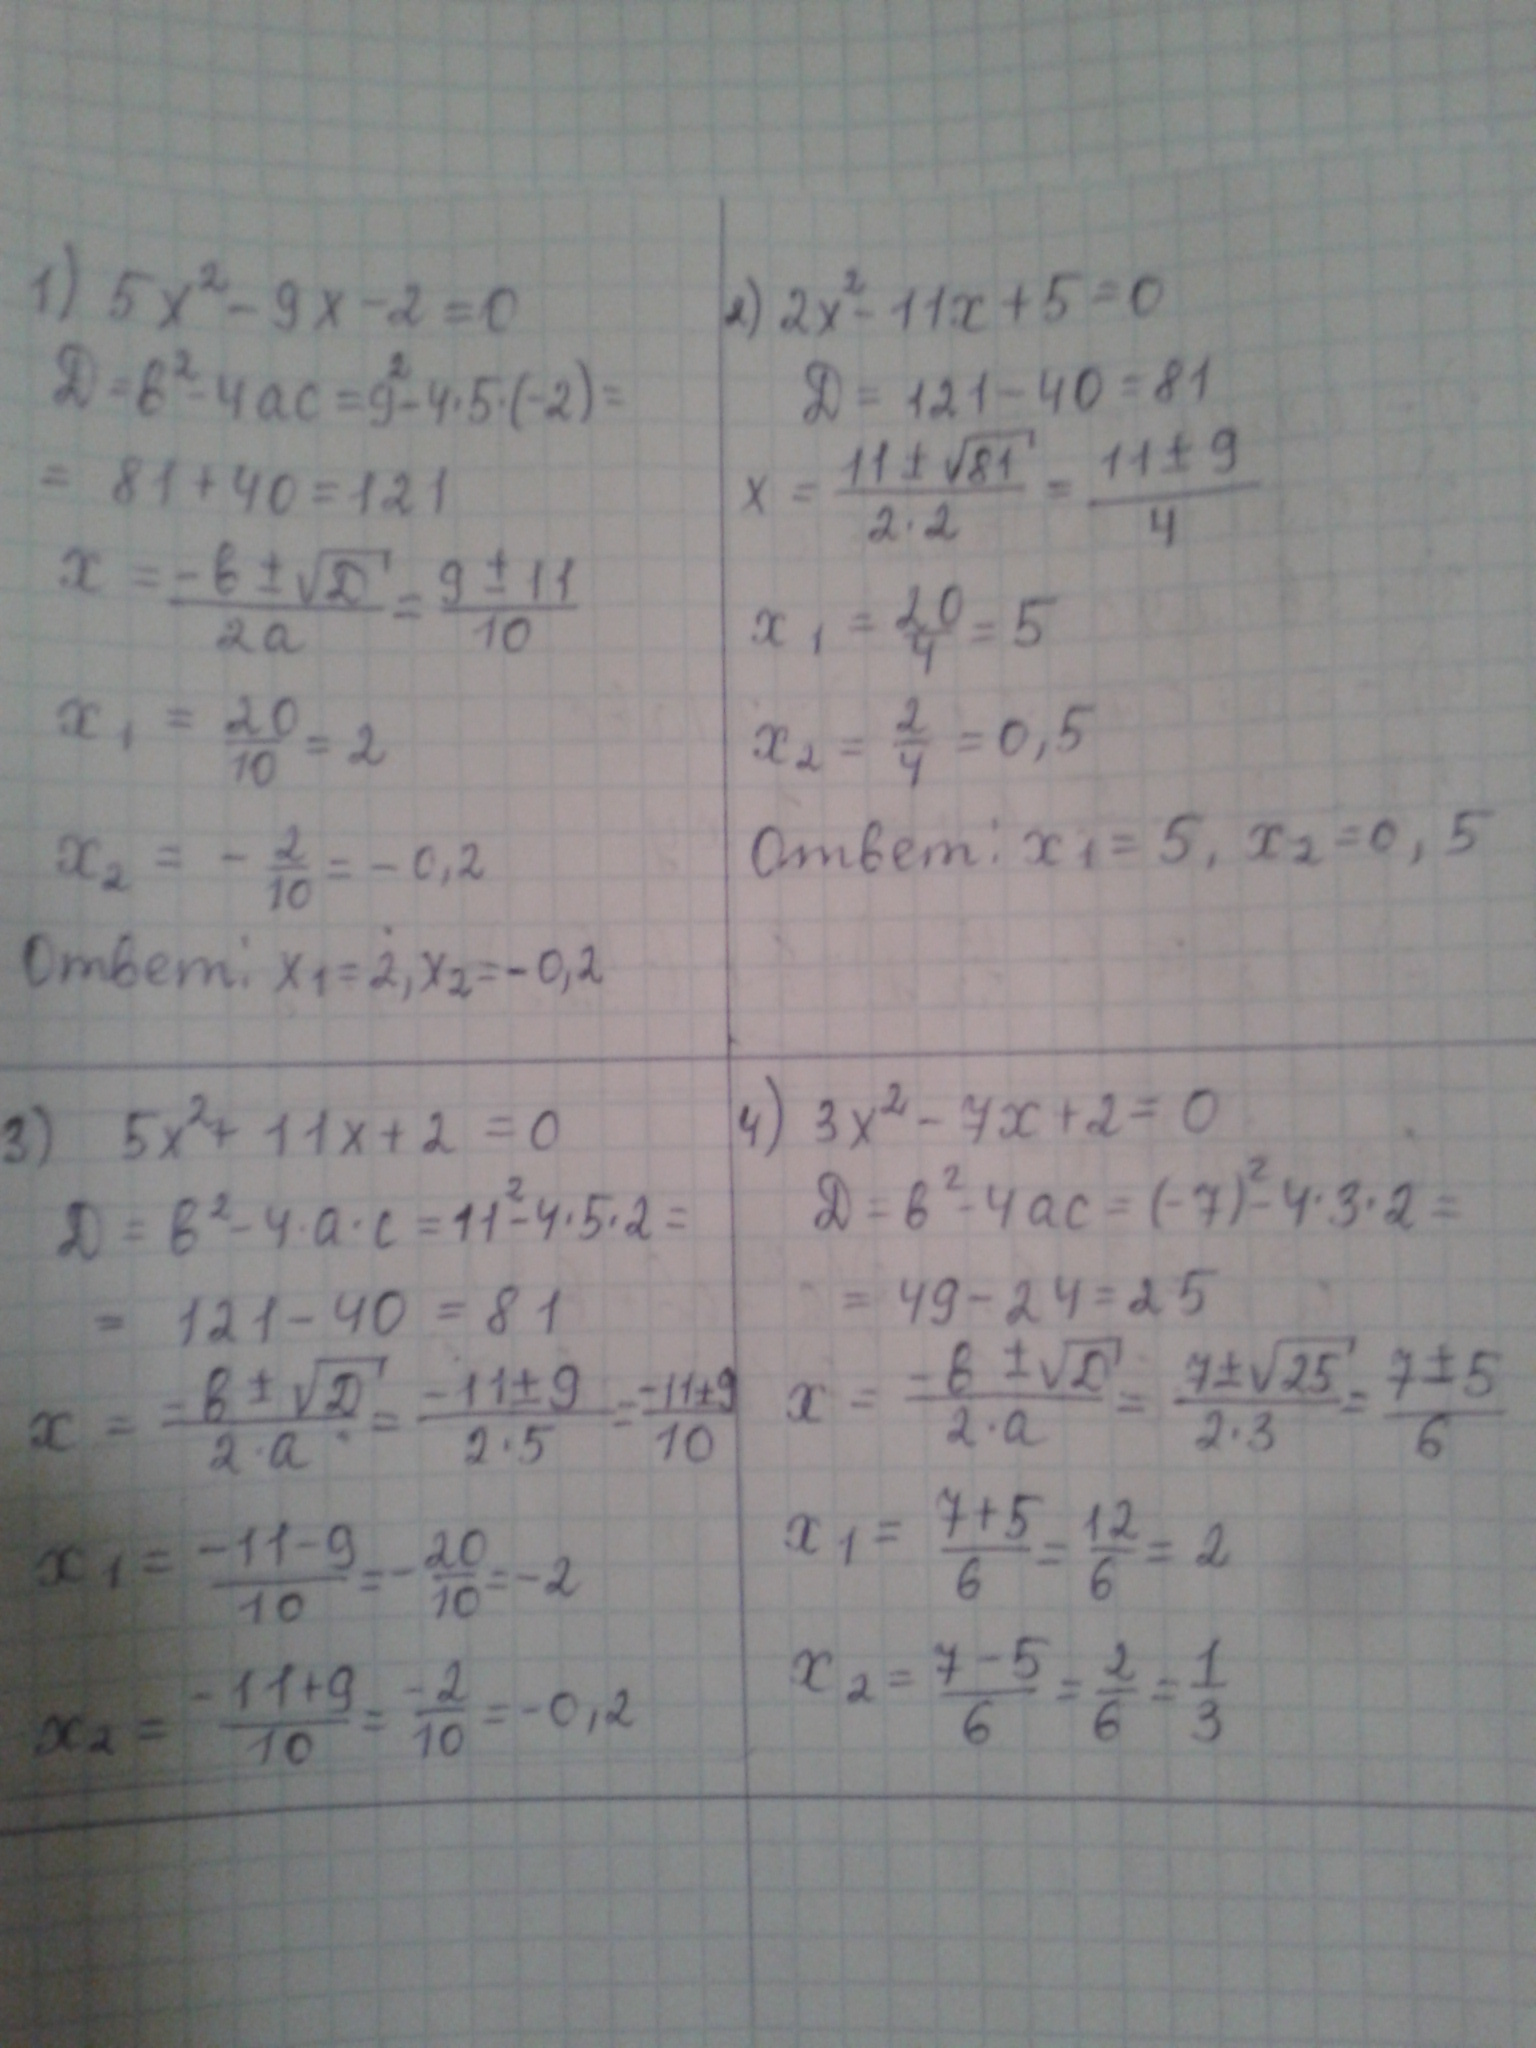 1) 5x² - 9x - 2 = 0
D = b² - 4ac = 9² - 4·5·(-2) =
= 81 + 40 = 121
x = (-b ± √D)/(2a) = (9 ± 11)/10
x₁ = 20/10 = 2
x₂ = - 2/10 = -0,2
Ответ: x₁ = 2, x₂ = -0,2
2) 2x² - 11x + 5 = 0
D = 121 - 40 = 81
x = (11 ± √81)/(2·2) = (11 ± 9)/4
x₁ = 20/4 = 5
x₂ = 2/4 = 0,5
Ответ: x₁ = 5, x₂ = 0,5
3) 5x² + 11x + 2 = 0
D = b² - 4·a·c = 11² - 4·5·2 =
= 121 - 40 = 81
x = (-b ± √D)/(2·a) = (-11 ± 9)/(2·5) = (-11 ± 9)/10
x₁ = (-11 - 9)/10 = - 20/10 = -2
x₂ = (-11 + 9)/10 = -2/10 = -0,2
4) 3x² - 7x + 2 = 0
D = b² - 4ac = (-7)² - 4·3·2 =
= 49 - 24 = 25
x = (-b ± √D)/(2·a) = (7 ± √25)/(2·3) = (7 ± 5)/6
x₁ = (7 + 5)/6 = 12/6 = 2
x₂ = (7 - 5)/6 = 2/6 = 1/3